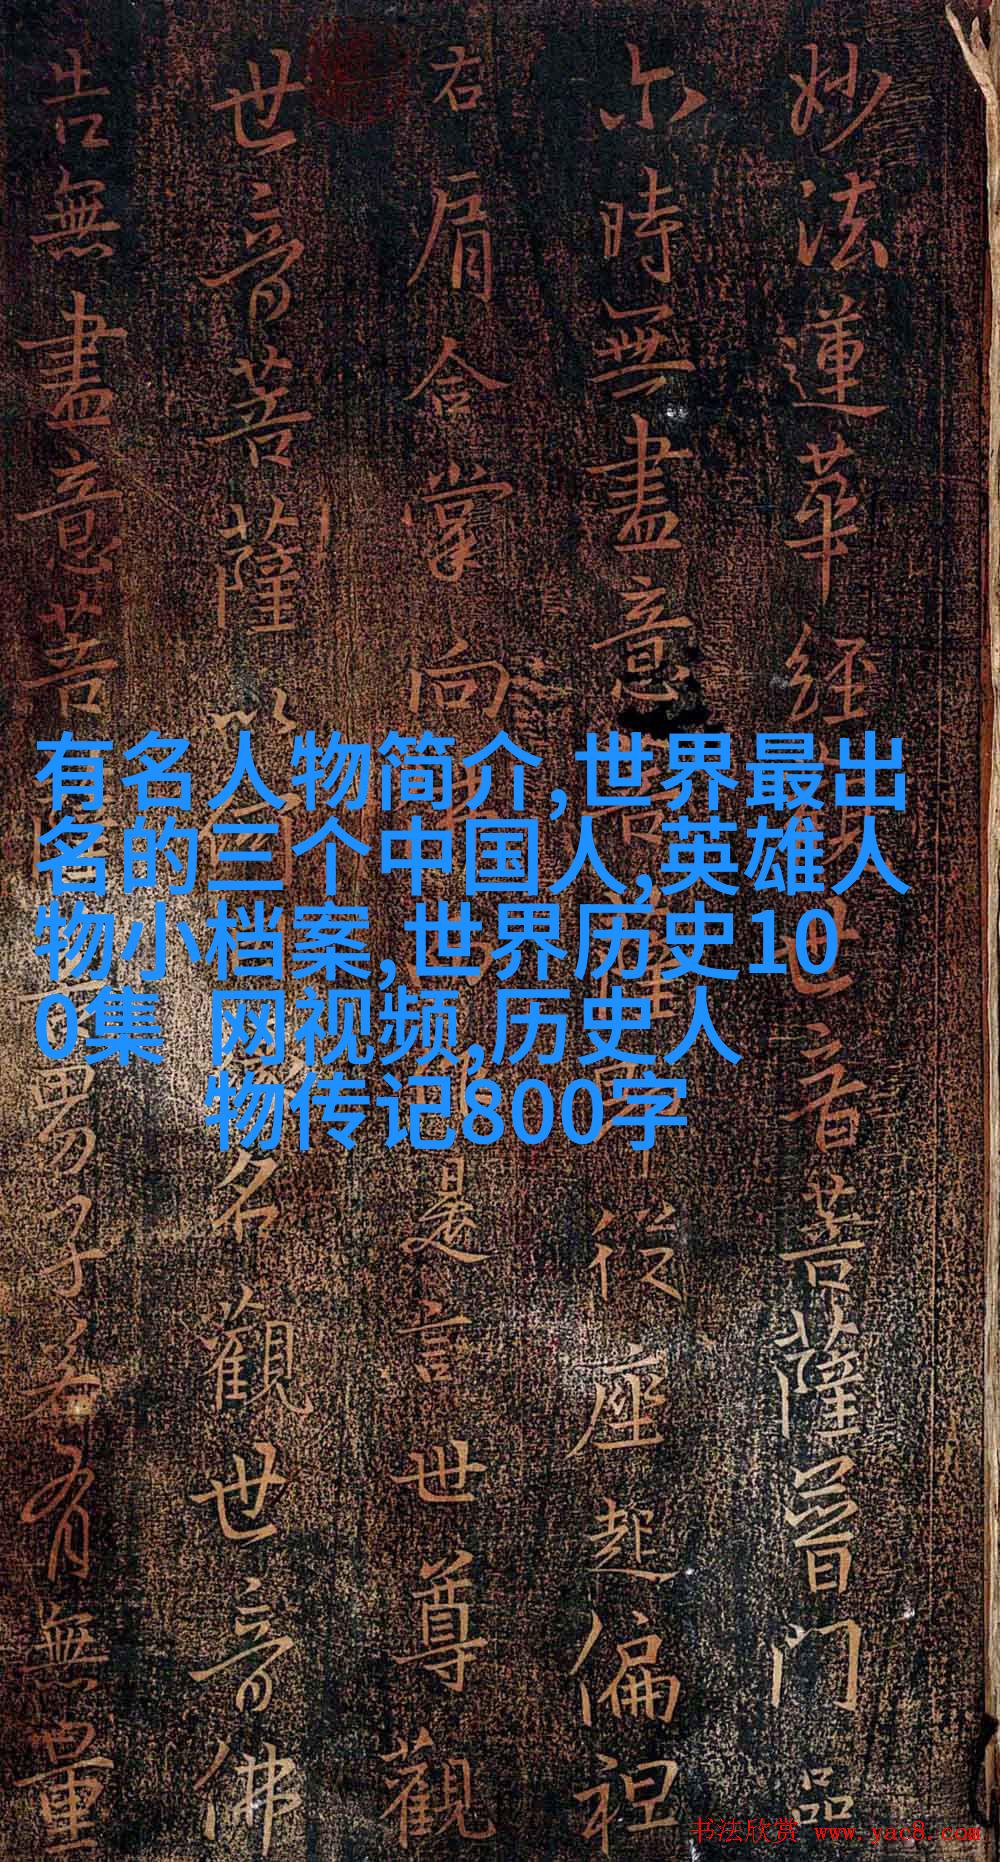 妙法蓮華經世音菩薩普門品
尒時無盡意菩從座起偏袒
右肩合掌向是言世尊觀
世音菩薩以何名觀世音佛
告無盡意菩男子若有無量
有名人物简介,世界最出
名的三个中国人,英雄人
物小档案,世界历史10
0集 网视频,历史人
物传记800字
书法欣赏 www.yac8.com